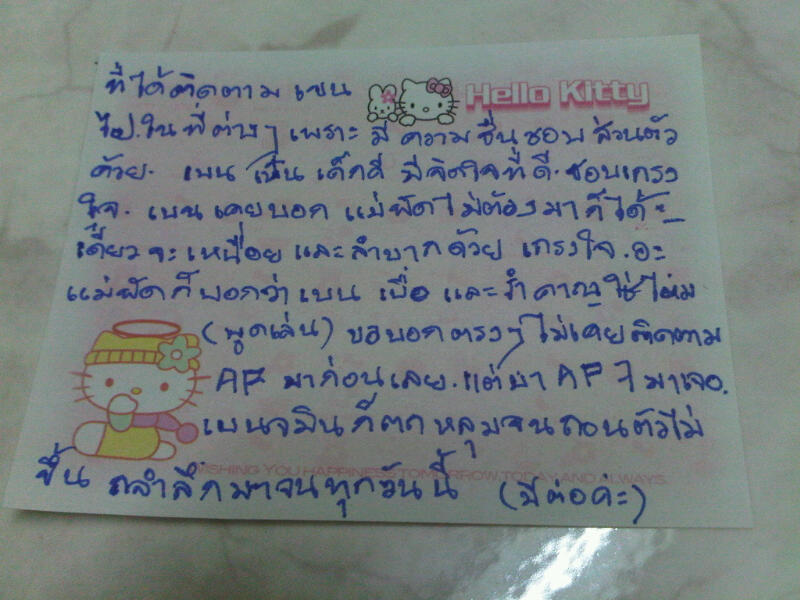 ที่ได้ติดตาม เบน
Hello Kitty
ไป.ในที่ต่างๆ เพราะ มี ความชื่นชอบ ส่วนตัว
ด้วย. เบน เป็น เด็กดี มีจิตใจที่ดี. ชอบเกรง
ใจ. เบน เคยบอก แม่พัด ไม่ต้องมา ก็ได้ะ
เดี๋ยว จะ เหนื่อย และ ลำบาก ด้วย เกรงใจ.อะ
แม่พัด ก็ บอกว่า เบน เบื่อ และ รำคาญ ใช่ไหม
(พูดเล่น) ขอบอก ตรงๆ ไม่เคย ติดตาม
AF มาก่อนเลย. แต่มา AF 7 มาเจอ.
เบนจมิน ก็ตก หลุมจนถอนตัวไม่
WISHING YOU HAPPINESS TOMORROW, TODAY, AND ALWAYS.
ขึ้น ถลำลึก มาจนทุกวันนี้ (มีต่อค่ะ)